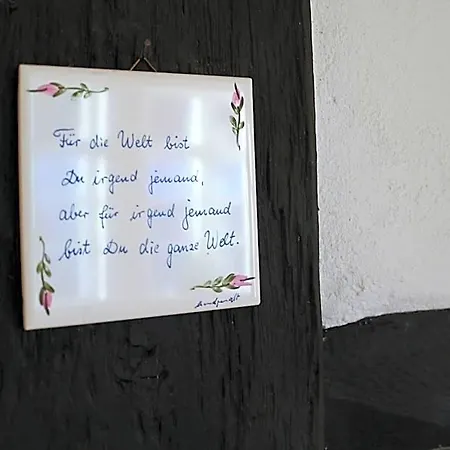 Für die Welt bist
Du irgend jemand,
aber für irgend jemand
bist Du die ganze Welt.
handgemalt